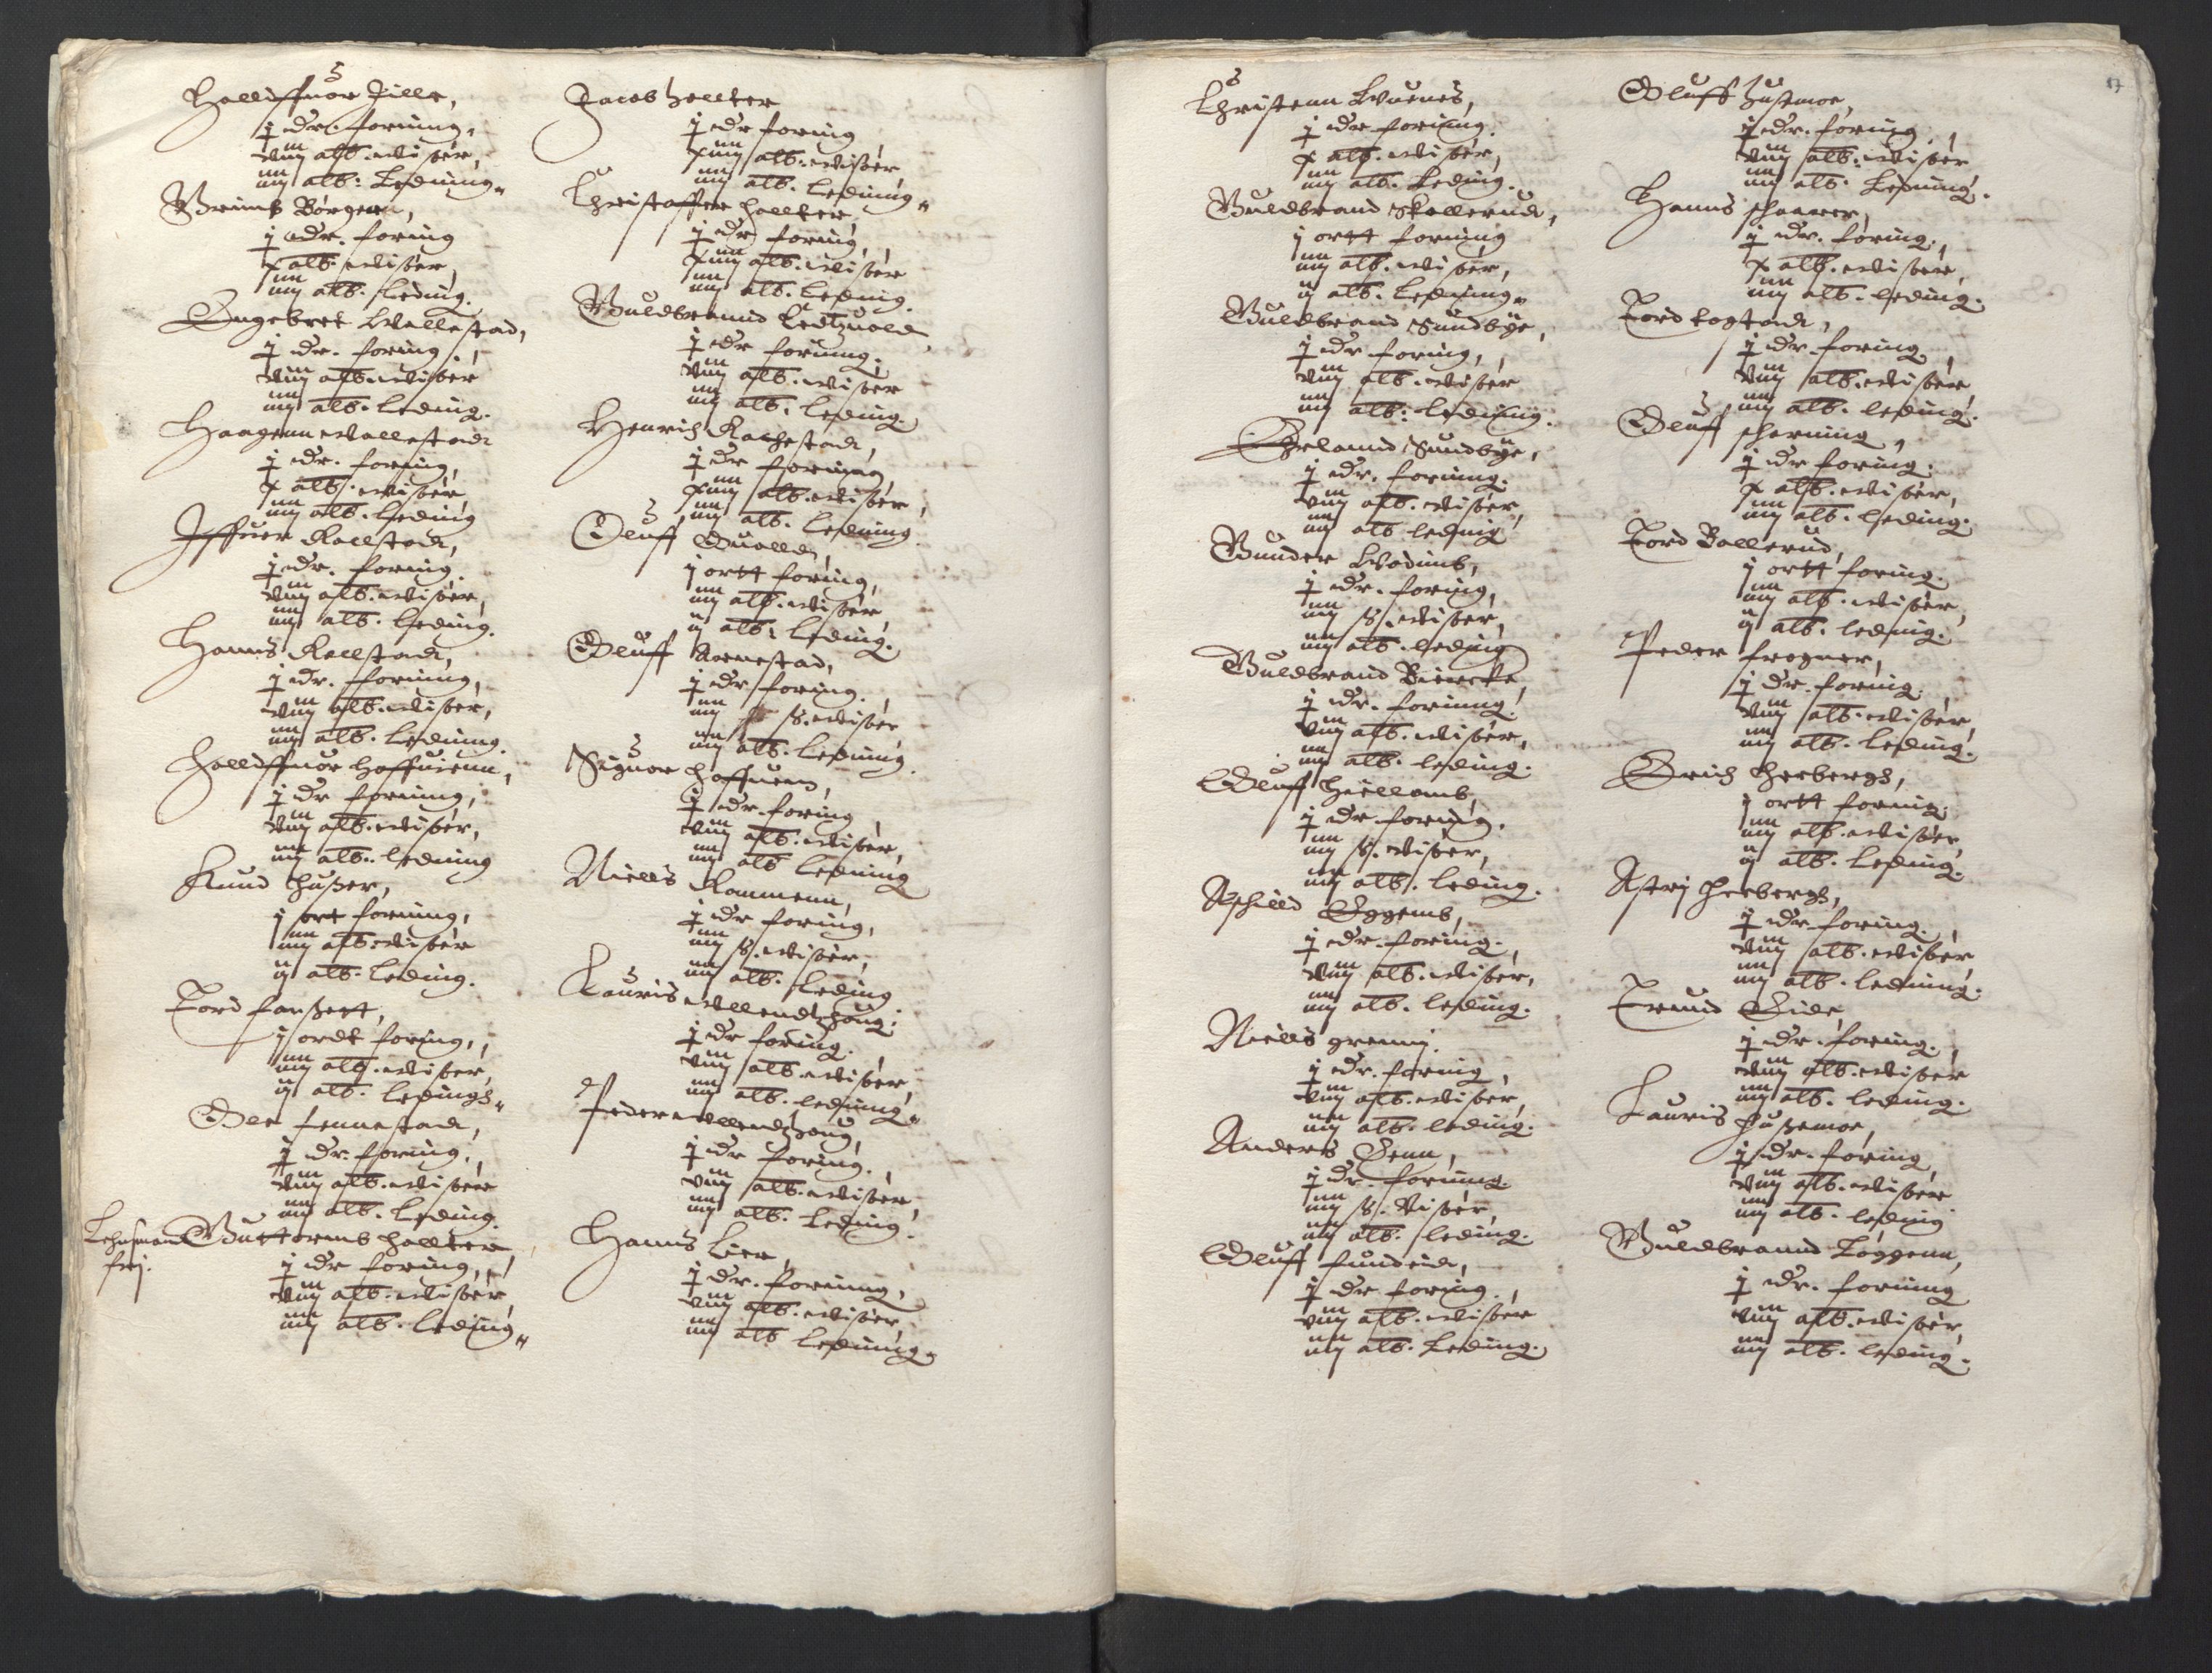 Halliffuor Zille,
j dr. foring,
viij alb. wisør,
iiij alb: Leding
Brimb Børgenn,
j dr. foring
x alb. wisør
iiij alb. leding.
Engebret Wallestad,
j dr. foring,
viij alb. wisør
iiij alb. leding.
Haagenn Wallestad
j dr. foring,
x alb. wisør
iiij alb. leding
Iffuer Kallstad,
j dr. foring
viij alb. wisør,
iiij alb. leding.
Hanns Kallstad,
j dr. foring,
viij alb. wisør,
iiij alb. leding.
Halliffuor Hoffuienn,
j dr foring,
viij alb. wisør,
iiij alb. leding
Knud Hußer,
j ort foring,
iiij alb. wisør
ij alb. leding.
Tord Fanßett,
j ordt foring,
iiij alb. wisør,
ij alb. ledings
Ole Fennestad,
j dr. foring,
viij alb. wisør
iiij alb. leding.
Lehnsmand frj. Guttormb Hollter
j dr foring,
viij alb. wisør,
iiij alb. leding
Jacob Hollter
j dr foring
xiiij alb. wisør
iiij alb. leding
Christoffer Hollter
j dr foring,
xiiij alb. wisør
iiij alb. leding.
Guldbrannd Ledtzuold
j dr foring.
viij alb. wisør
iiij alb. leding.
Henrich Kachestad,
j dr foring
xiiij alb. wisør,
iiij alb. leding
Oluff Quolld,
j ortt foring,
iiij alb. wisør,
ij alb. leding.
Oluff Kornestad,
j dr foring.
iiij ß. wisør
iiij alb. leding.
Siguor Hoffuenn,
j dr. foring
viij alb. wisør,
iiij alb leding
Niells Kommenn,
j dr foring,
iiij ß. wisør,
iiij alb. leding
Lauris Wllendtzhoug,
j dr foring.
viij alb. wisør
iiij alb. leding
Peder Wllendtzhoug,
j dr foring.
viij alb. wisør,
iiij alb. leding.
Hanns Lier,
j dr. foring,
viij alb. wisør,
iiij alb leding
Christenn Wuenes,
j dr foring.
x alb. wisør,
iiij alb. leding.
Guldbrand Skollerud,
j ortt foring
iiij alb. wisør,
ij alb. leding
Guldbrannd Sundbye,
j dr foring,
viij alb. wisør
iiij alb: leding.
Erlannd Sundbye,
j dr. foring.
viij alb. wisør,
iiij alb leding
Gunder Wodimb,
j dr. foring,
iiij ß. wisør,
iiij alb. leding
Guldbrannd Biercke,
j dr. foring.
viij alb. wisør,
iiij alb. leding.
Oluff Hiellomb,
j dr foring.
iiij ß. wisør,
iiij alb. leding.
Aschilld Eggemb,
j dr. foring.
viij alb. wisør,
iiij alb. leding.
Niells grennj.
j dr. foring,
viij alb. wisør,
iiij alb. leding.
Anders Enn,
j dr. foring.
iiij ß. wisør,
iiij alb. leding.
Oluff fundeid,
j dr foring.
viij alb. wisør
iiij alb. Leding.
17
Oluff Hustmoe,
j dr. foring.
viij alb. wisør
iiij alb. Leding.
Hanns schaarer,
j dr. foring.
x alb. wisør,
iiij alb. leding.
Tord Logstad,
j dr. foring
viij alb. wisør
iiij alb. leding.
Oluff schorning,
j dr foring.
x alb. wisør,
iiij alb. leding.
Tord Bollerud,
j ortt foring.
iiij alb. wisør,
ij alb. leding.
Peder frogner,
j dr. foring.
viij alb. wisør,
iiij alb. leding.
Erich Herbergh,
j ortt foring.
iiij alb. wisør,
ij alb. leding.
Astrj Herbergh,
j dr foring.
viij alb. wisør
iiij alb. leding.
Trund Eide,
j dr. foring.
viij alb. wisør
iiij alb. leding.
Lauris Hußemoe,
j dr. foring,
viij alb. wisør
iiij alb. leding
Guldbrannd Loggenn,
j dr. foring
viij alb. wisør,
iiij alb. leding.